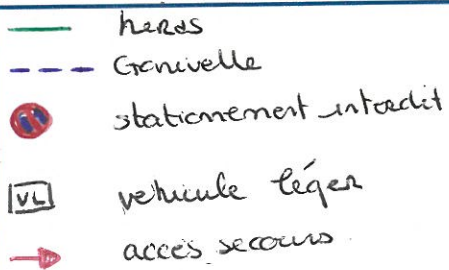 heras
Granivelle
stationnement interdit
VL véhicule léger
accès secours